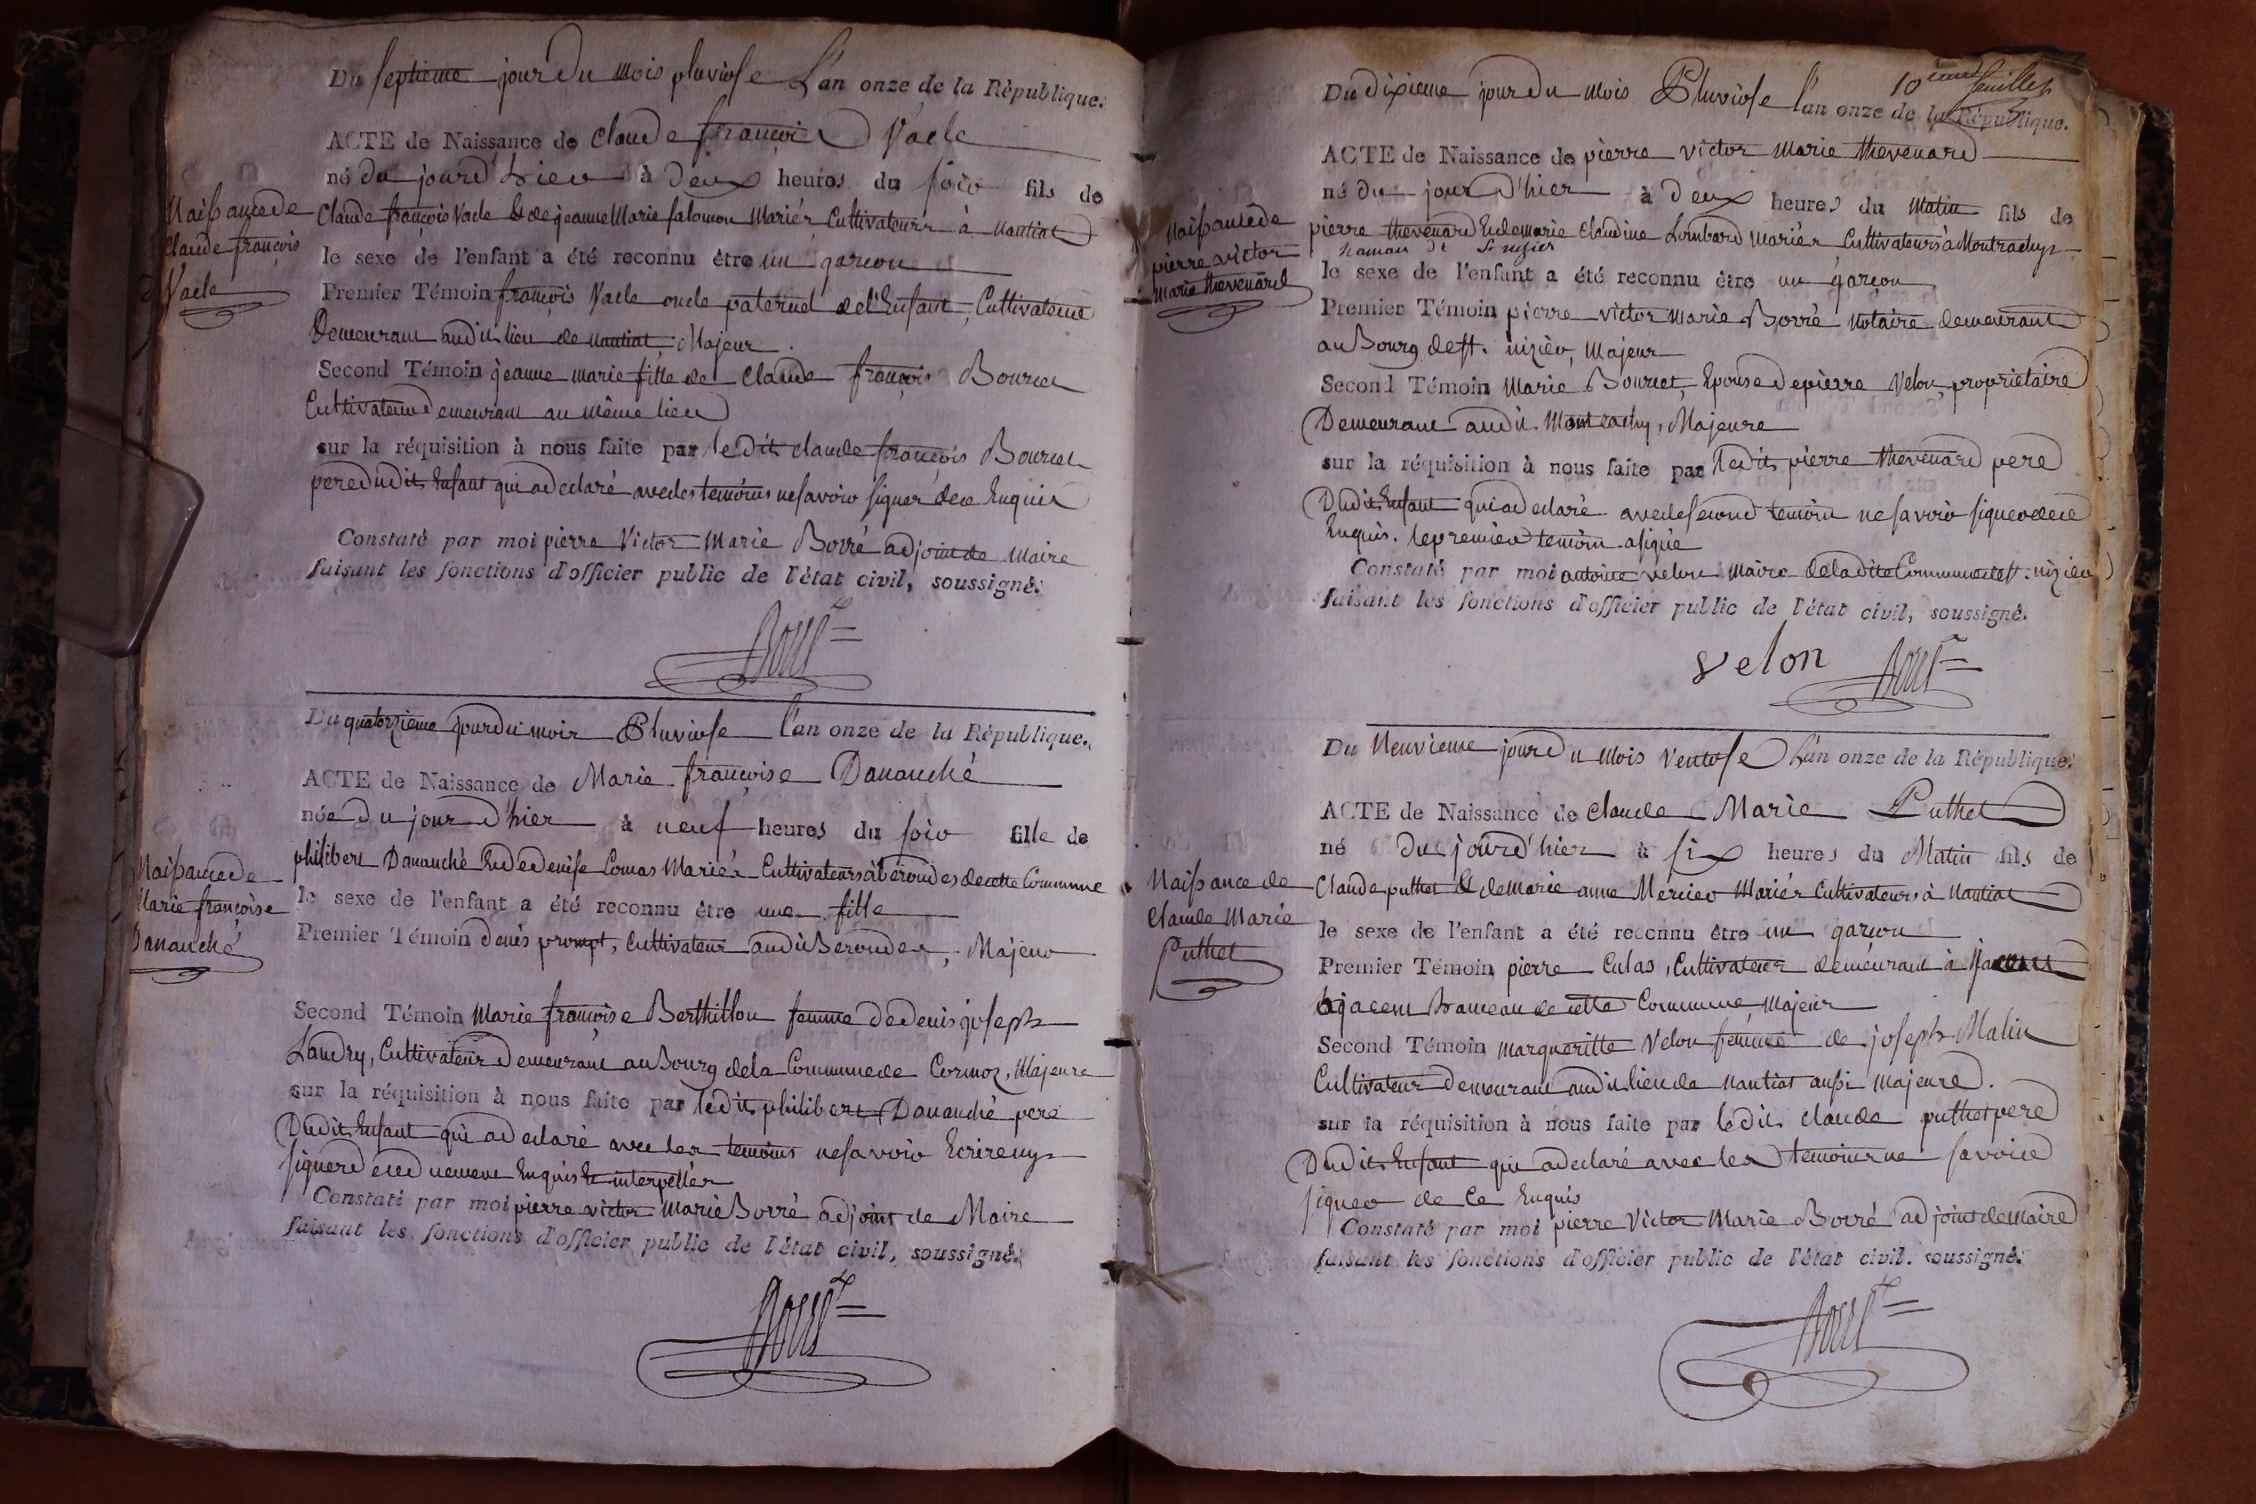 Du septieme jour du mois pluviose L'an onze de la République.
ACTE de Naissance de Claude françois Vacle
né du jourd'hier à deux heures du soir fils de
Claude françois Vacle & de jeanne Marie salomon Mariés Cultivateurs à Nantiat
le sexe de l'enfant a été reconnu être un garcon
Premier Témoin françois Vacle oncle paternel de l'Enfant, Cultivateur
Demeurant audit lieu de Nantiat, Majeur.
Second Témoin jeanne marie fille de Claude françois Bourcet
Cultivateur Demeurant au même lieu
sur la réquisition à nous faite par ledit claude françois Bourcet
pere dudit Enfant qui a declaré avec les temoins ne savoir signer de ce Enquis
Constaté par moi pierre Victor Marie Borré adjoint de Maire
faisant les fonctions d'officier public de l'état civil, soussigné.
Naissance de
Claude françois
Vacle
Borré
Du quatorzieme jour du mois Pluviose l'an onze de la République.
ACTE de Naissance de Marie françoise Dananché
née du jour d'hier à neuf heures du soir fille de
philibert Dananché Et de denise Comas Mariés Cultivateurs à Béroudes de cette Commune
le sexe de l'enfant a été reconnu être une fille
Premier Témoin denis prompt, Cultivateur audit Beroudes, Majeur
Second Témoin Marie françoise Berthillon femme de denis joseph
Landry, Cultivateur Demeurant au Bourg de la Commune de Cormoz, Majeure
sur la réquisition à nous faite par ledit philibert Dananché pere
Dudit Enfant qui a declaré avec les temoins ne savoir Ecrire ny
signer de ce duement Enquis & interpellés
Constaté par moi pierre victor Marie Borré adjoint de Maire
faisant les fonctions d'officier public de l'état civil, soussigné.
Naissance de
Marie françoise
Dananché
Borré
10 eme feuillet
Du dixieme jour du mois Pluviose l'an onze de la République.
ACTE de Naissance de pierre victor Marie thevenard
né du jour d'hier à deux heures du Matin fils de
pierre thevenard Et de marie Claudine Lombard Mariés Cultivateurs à Montrachy
hameau de St nizier
le sexe de l'enfant a été reconnu être un garçon
Premier Témoin pierre victor marie Borré Notaire demeurant
au Bourg de St. nizier, Majeur
Second Témoin Marie Bourcet, Epouse de pierre Velon, proprietaire
Demeurant audit Montrachy, Majeure
sur la réquisition à nous faite par ledit pierre thevenard pere
Dudit Enfant qui a declaré avec le second temoin ne savoir signer de ce
Enquis. le premier temoin a signé
Constaté par moi antoine Velon Maire de ladite Commune de St. nizier
faisant les fonctions d'officier public de l'état civil, soussigné.
Naissance de
pierre victor
Marie thevenard
Velon Borré
Du Neuvieme jour du Mois Ventose L'an onze de la République.
ACTE de Naissance de Claude Marie Puthet
né Du jourd'hier à six heures du Matin fils de
Claude puthet & de Marie anne Mercier Mariés Cultivateurs à Nantiat
le sexe de l'enfant a été reconnu être un garcon
Premier Témoin pierre Culas, Cultivateur demeurant à
hameau de cette Commune, Majeur
Second Témoin Margueritte Velon femme de joseph Malin
Cultivateur Demeurant audit lieu de Nantiat aussi Majeure.
sur la réquisition à nous faite par ledit claude puthet pere
Dudit Enfant qui a declaré avec les temoins ne savoir
signer de Ce Enquis
Constaté par moi pierre Victor Marie Borré adjoint de Maire
faisant les fonctions d'officier public de l'état civil. soussigné.
Naissance de
Claude Marie
Puthet
Borré